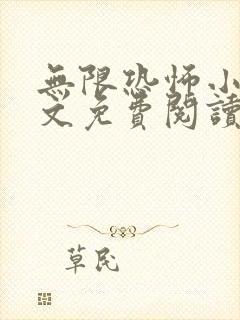 無限恐怖小
文免費閱讀
草民